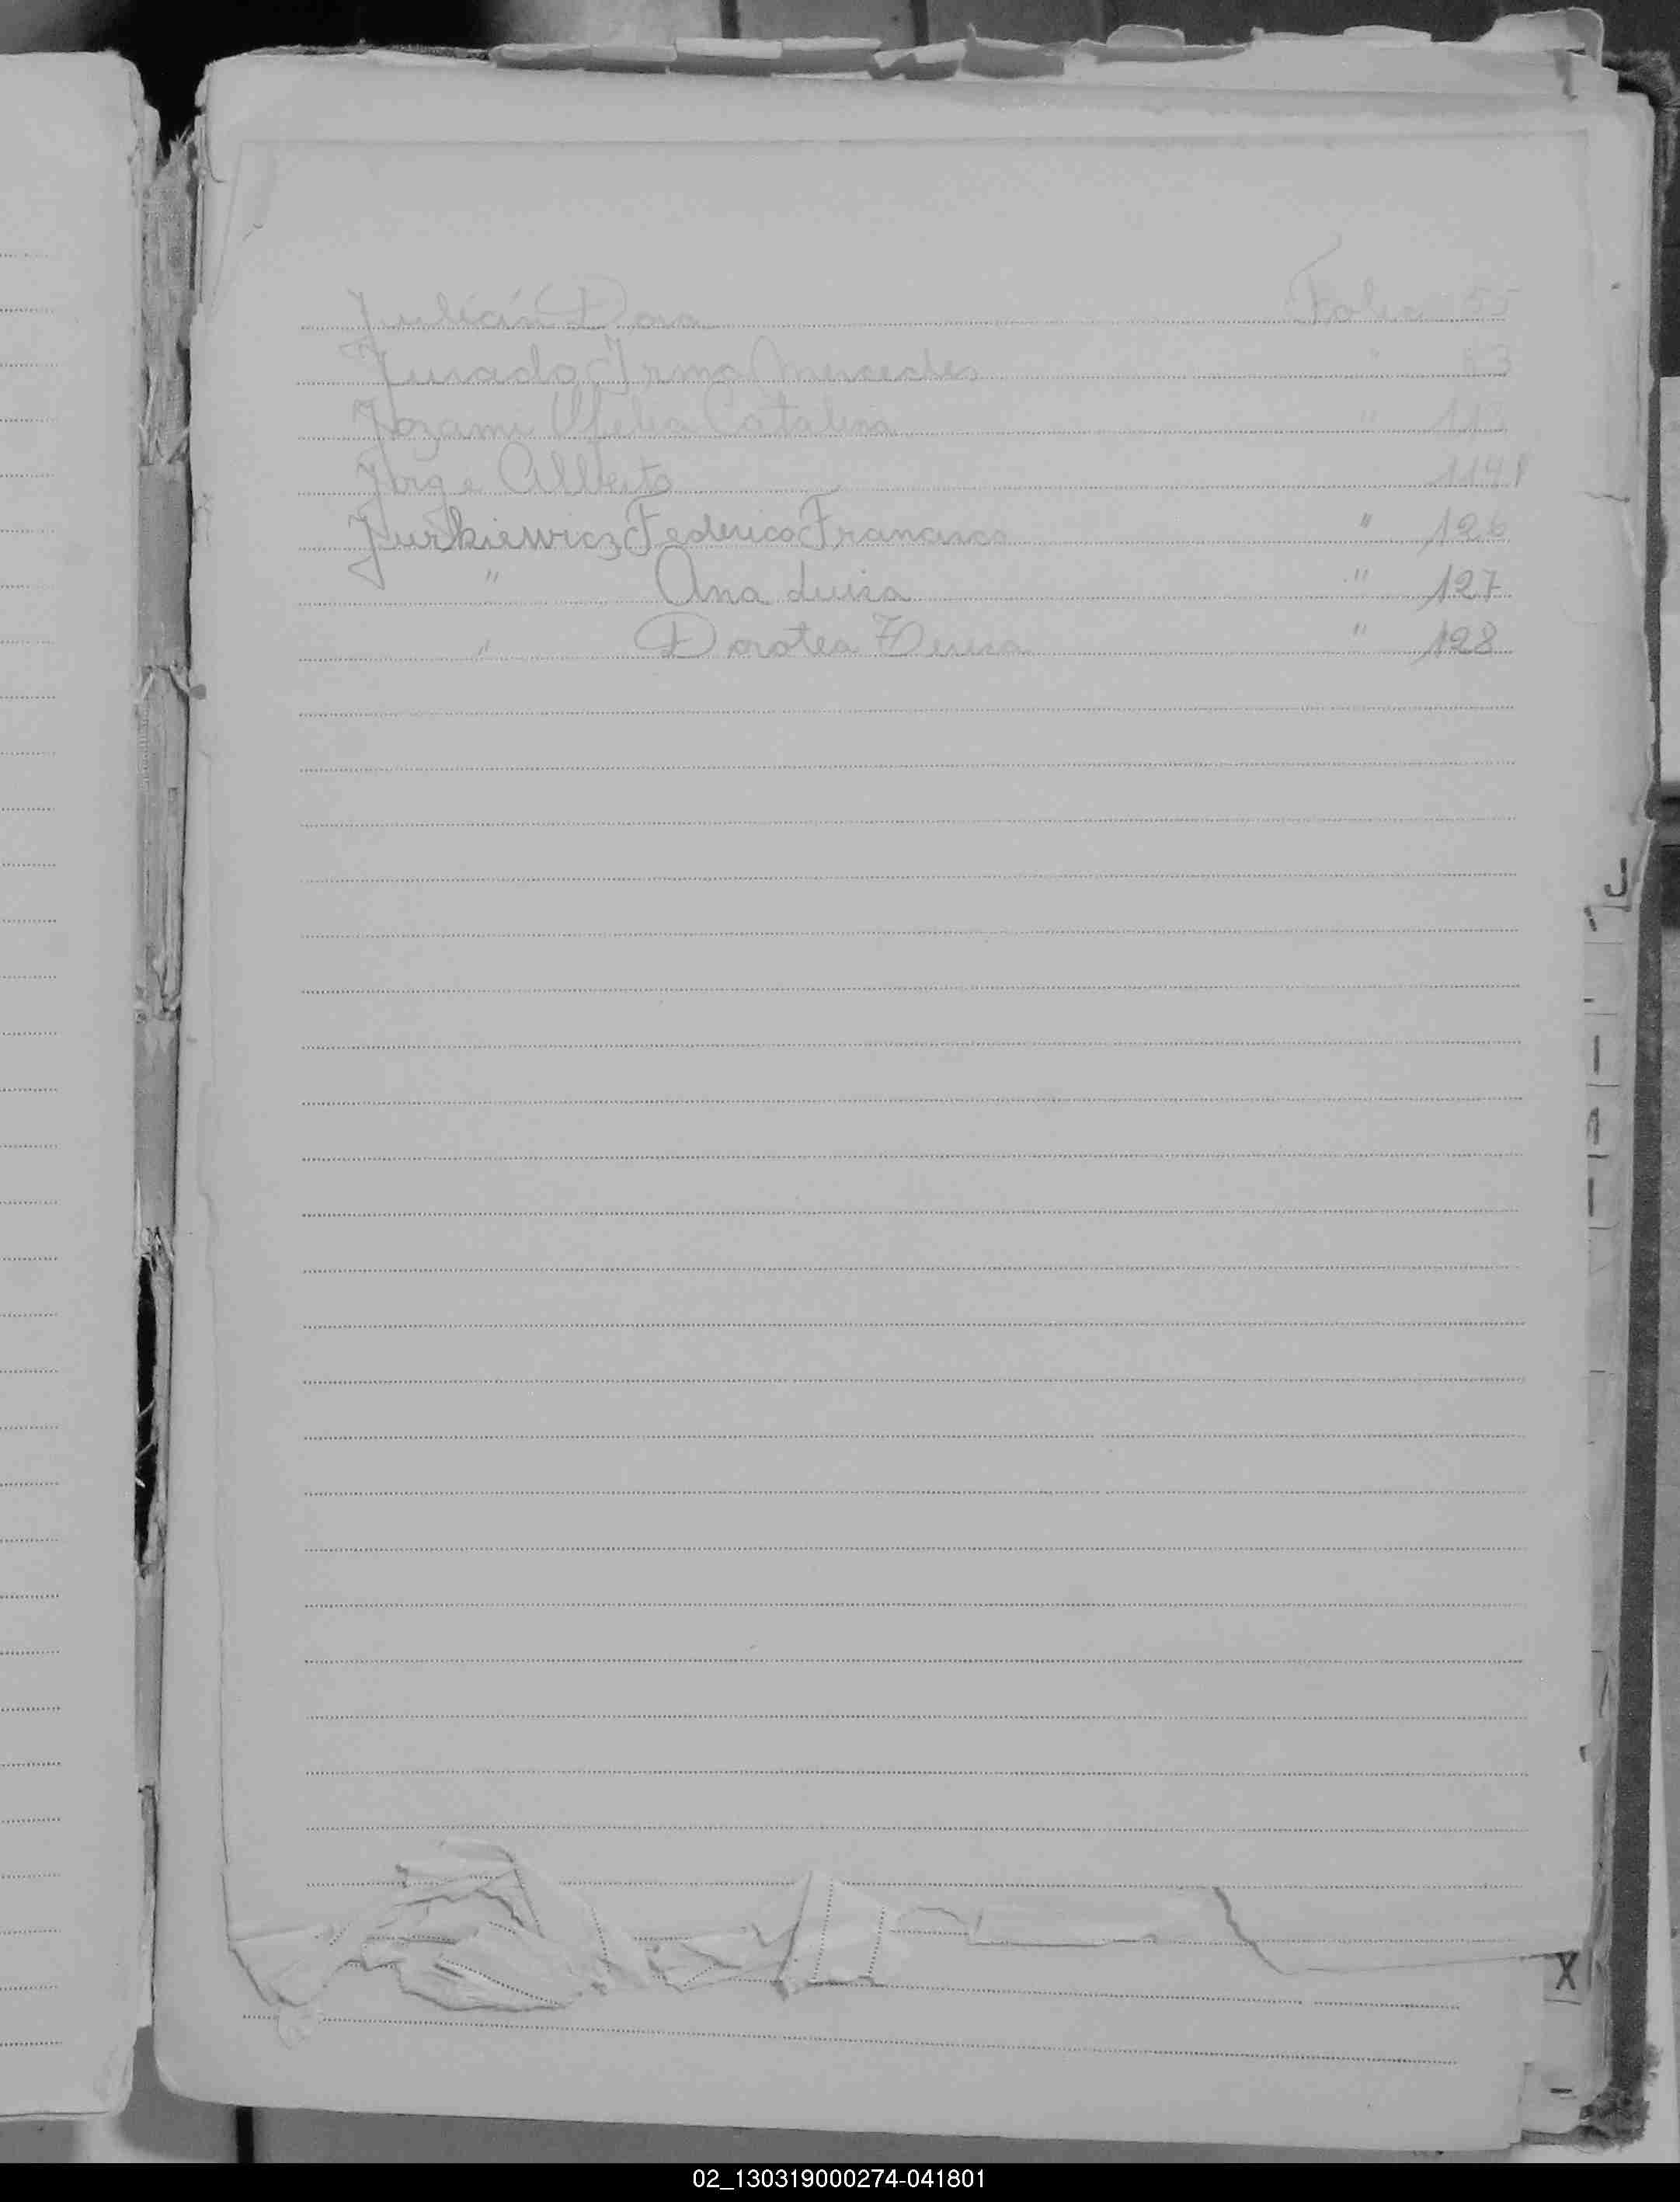 Julián Dora Folio 55
Jurado Irma Mercedes "
Jozami Ofelia Catalina " 113
Jorge Alberto 114
Jurkiewicz Federico Francisco " 126
" Ana Luisa " 127
" Dorotea Teresa " 128
J
X
02_130319000274-041801